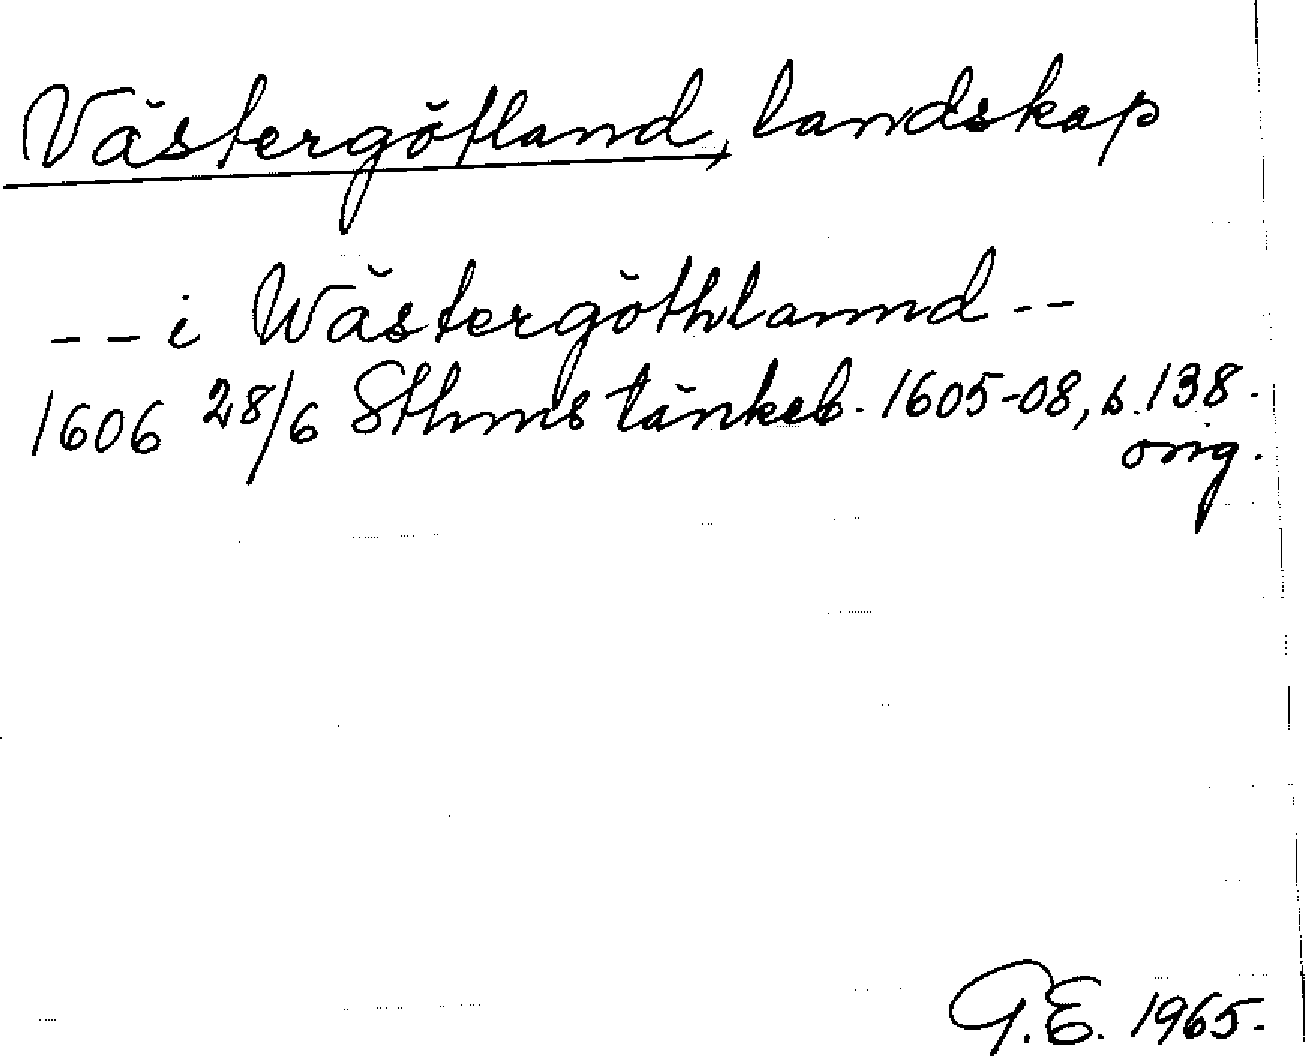 Västergötland, landskap
-- i Wästergöthlannd --
1606 28/6 Sthms tänkeb. 1605-08, s. 138.
orig.
G.E. 1965.